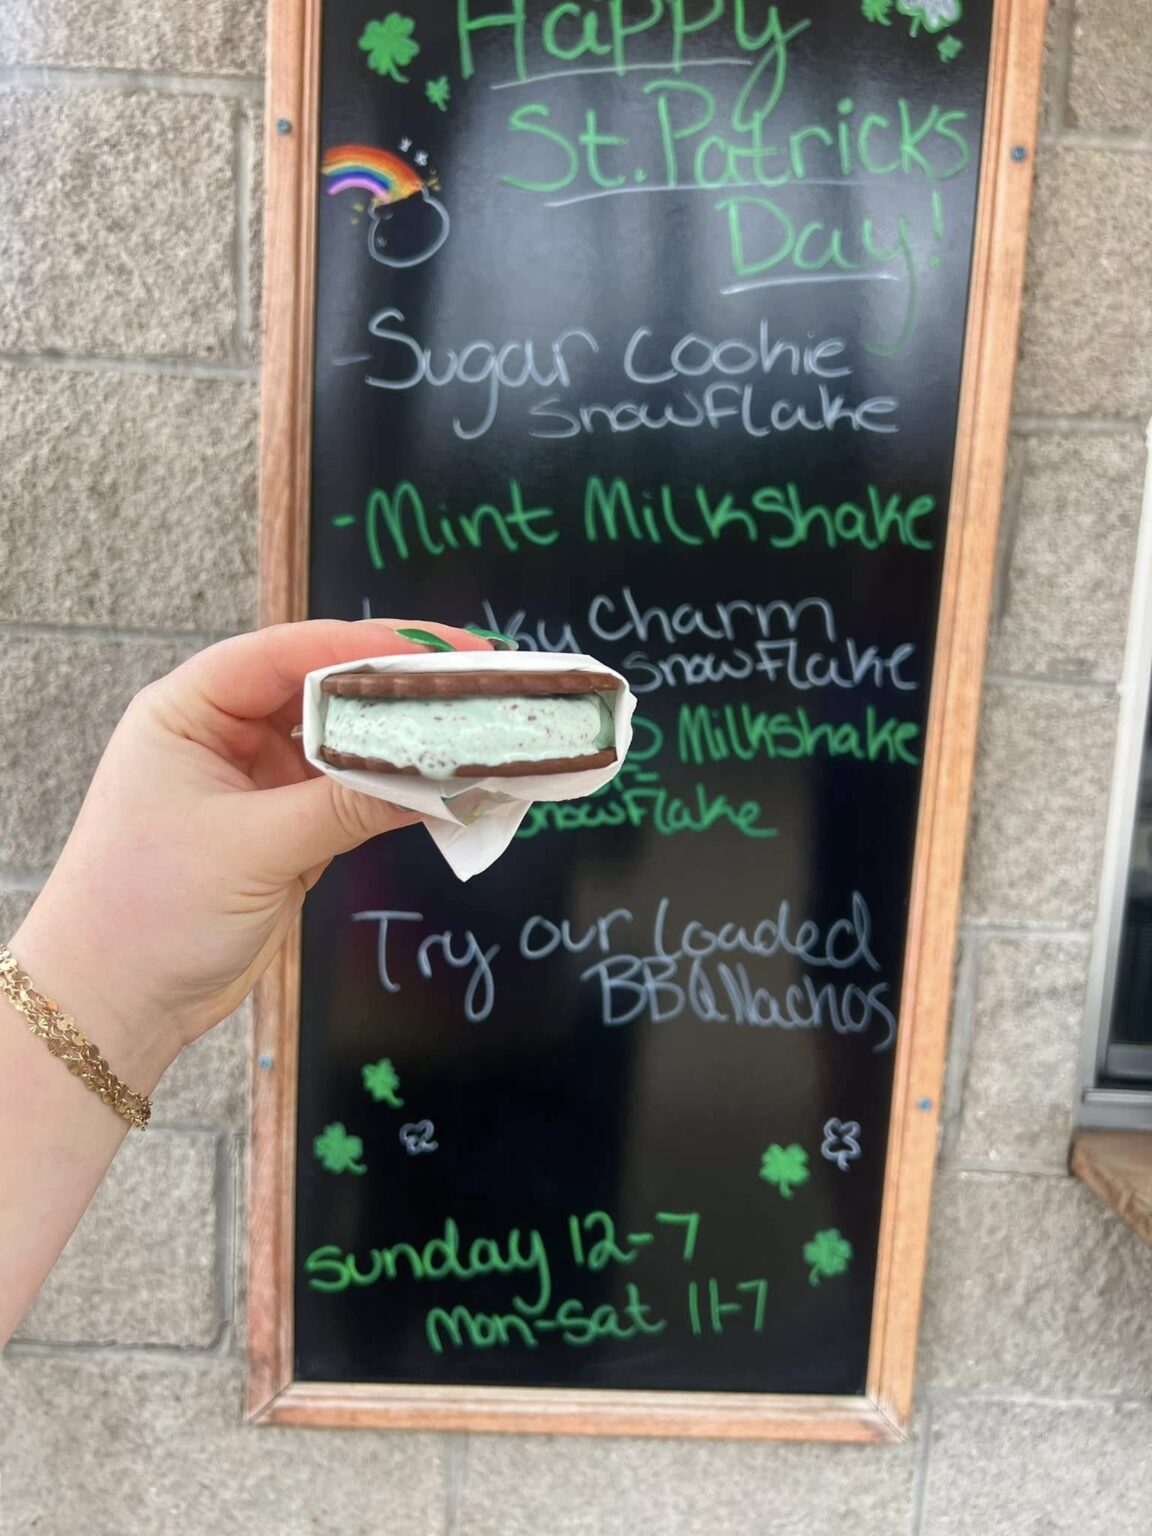 Happy
St. Patricks
Day!
- Sugar Cookie
Snowflake
- Mint Milkshake
Charm
Snowflake
Milkshake
Snowflake
Try our Loaded
BBQ Nachos
Sunday 12-7
Mon-Sat 11-7